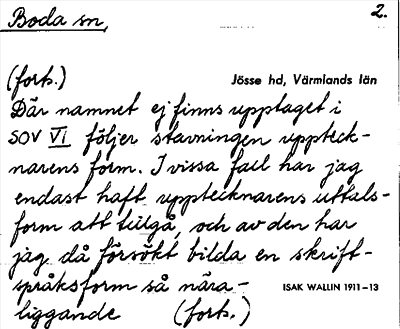 Boda sn,
2.
(forts.)
Jösse hd, Värmlands län
Där namnet ej finns upptaget i
SOV VI följer stavningen uppteck-
narens form. I vissa fall har jag
endast haft upptecknarens uttals-
form att tillgå, och av den har
jag då försökt bilda en skrift-
språksform så nära-
ISAK WALLIN 1911–13
liggande (forts.)